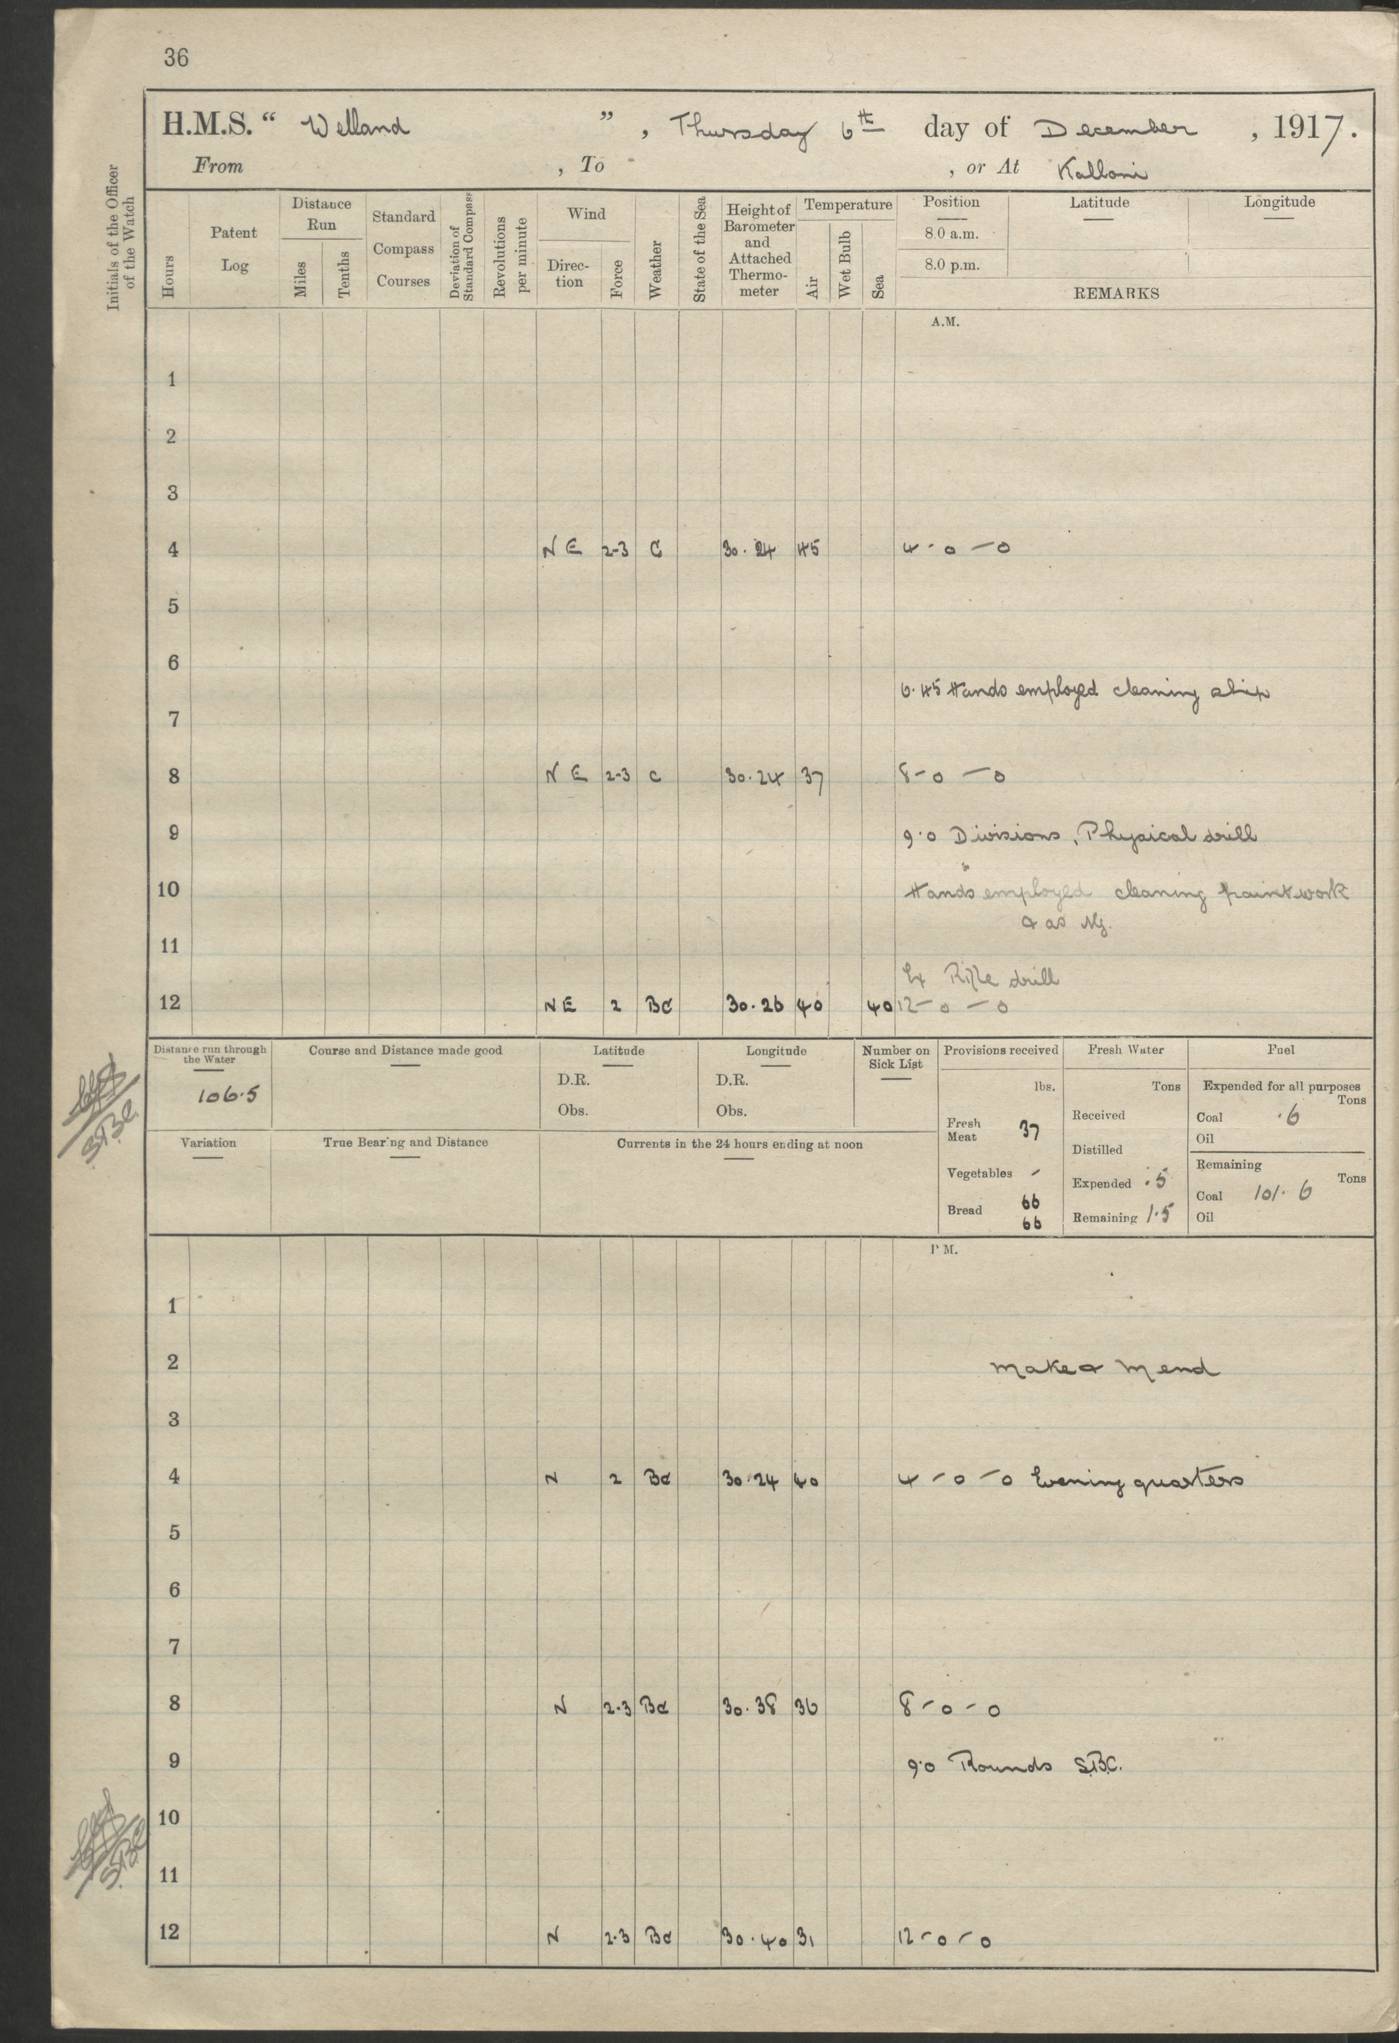 36
H.M.S. “ Welland ” , Thursday 6th day of December , 1917.
From , To , or At Kalloni
Initials of the Officer of the Watch
Hours
Patent Log
Distance Run
Miles
Tenths
Standard Compass Courses
Deviation of Standard Compass
Revolutions per minute
Wind
Direc-tion
Force
Weather
State of the Sea
Height of Barometer and Attached Thermo-meter
Temperature
Air
Wet Bulb
Sea
Position Latitude Longitude
8.0 a.m.
8.0 p.m.
REMARKS
A.M.
1
2
3
4 NE 2-3 C 30.24 45 4-0-0
5
6
6.45 Hands employed cleaning ship
7
8 NE 2-3 C 30.24 37 8-0-0
9 9.0 Divisions, Physical drill
10 Hands employed cleaning paintwork
& as
11
Rifle drill
12 NE 2 Bc 30.26 40 40 12-0-0
Distance run through the Water
106.5
Course and Distance made good
Latitude
D.R.
Obs.
Longitude
D.R.
Obs.
Number on Sick List
Variation
True Bearing and Distance
Currents in the 24 hours ending at noon
Provisions received
lbs.
Fresh Meat 37
Vegetables -
Bread 66
66
Fresh Water
Tons
Received
Distilled
Expended .5
Remaining 1.5
Fuel
Expended for all purposes
Tons
Coal .6
Oil
Remaining
Tons
Coal 101.6
Oil
P.M.
1
2 Make & Mend
3
4 N 2 Bc 30.24 40 4-0-0 Evening quarters
5
6
7
8 N 2.3 Bc 30.38 36 8-0-0
9 9.0 Rounds S.B.C.
10
11
12 N 2.3 Bc 30.40 31 12-0-0